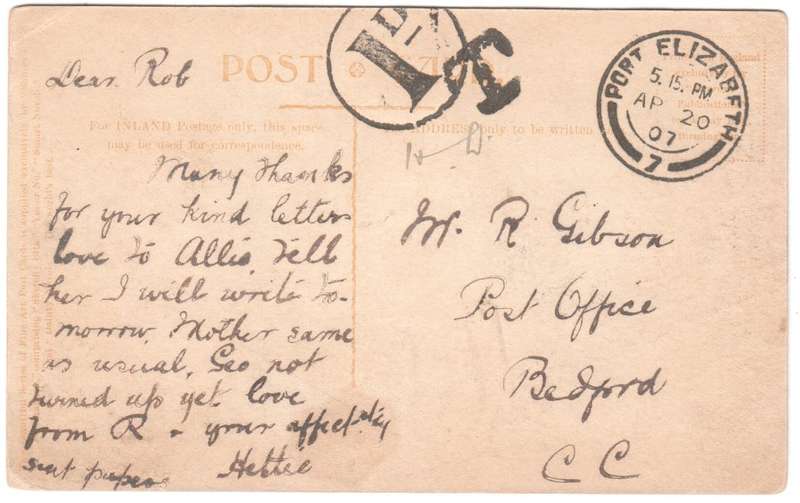 POST CARD.
1D
T
PORT ELIZABETH
5.15. PM
AP 20
07
7
For INLAND Postage only, this space
may be used for correspondence.
ADDRESS only to be written
Dear Rob
Many Thanks
for your kind letters
love to Allie, Tell
her I will write to-
morrow, Mother same
as usual, Geo not
turned up yet love
from R - your affect
sent papers Hettie
Mr. R. Gibson
Post Office
Bedford
CC